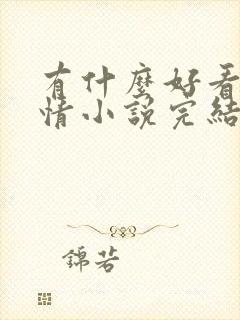 有什麼好看
情小說完結
錦若